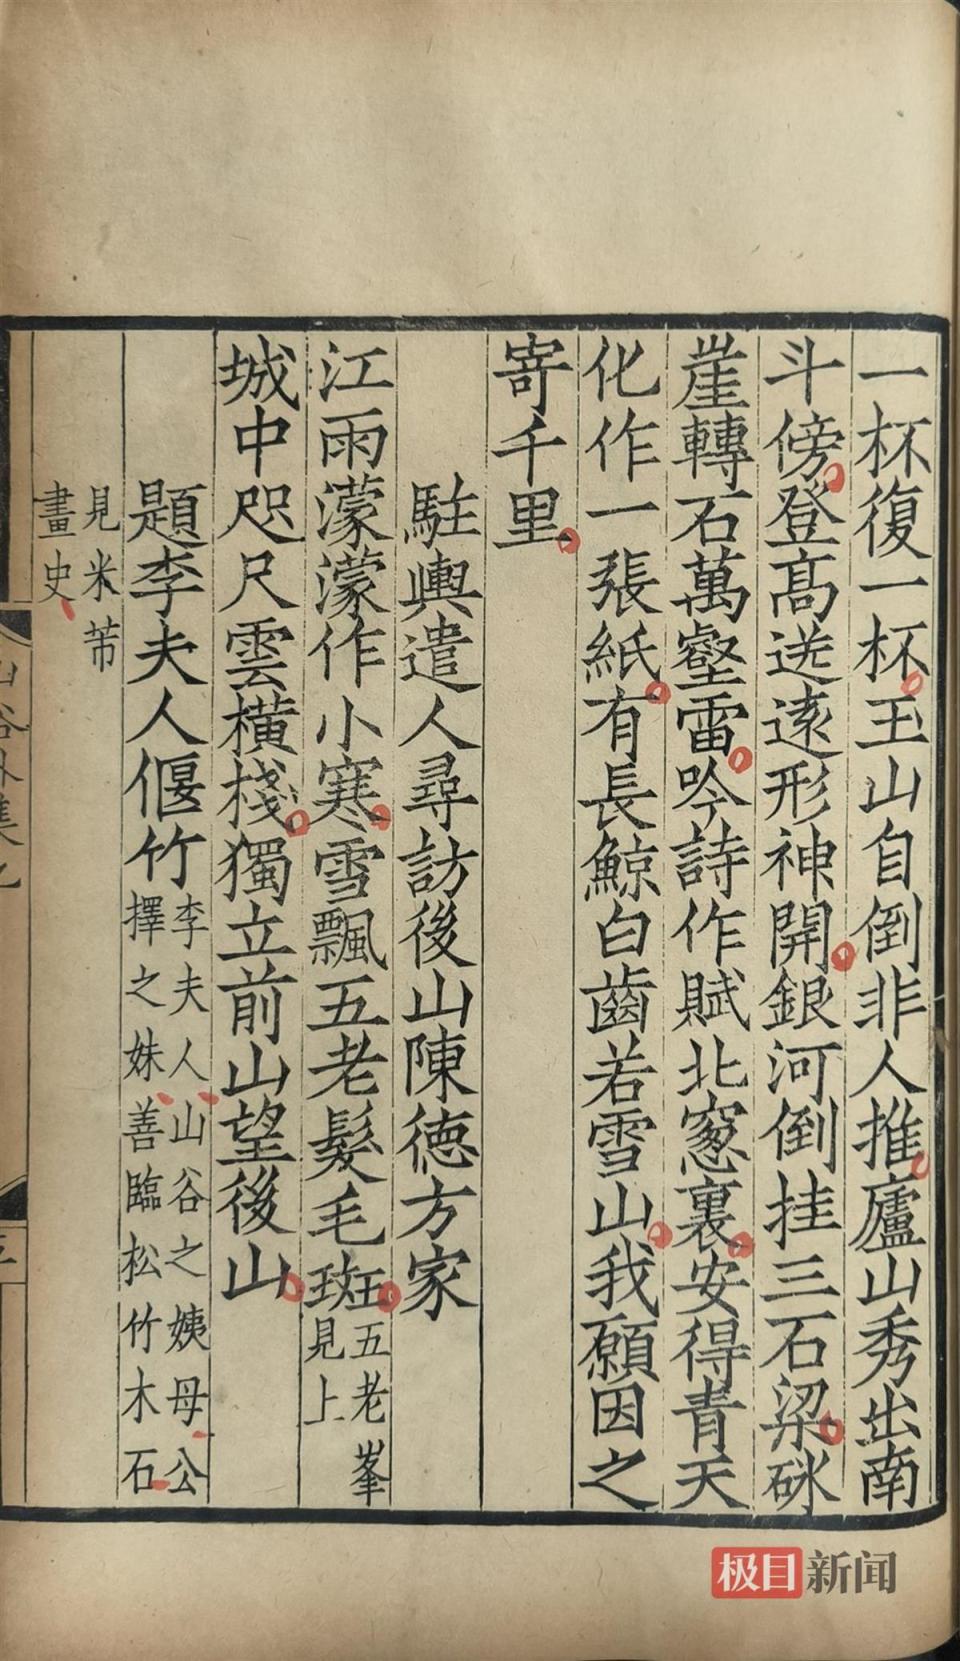 一杯復一杯玉山自倒非人推廬山秀出南
斗傍登高送遠形神開銀河倒挂三石梁砯
崖轉石萬壑雷吟詩作賦北窻裏安得青天
化作一張紙有長鯨白齒若雪山我願因之
寄千里
駐輿遣人尋訪後山陳德方家
江雨濛濛作小寒雪飄五老髮毛斑五老峯
見上
城中咫尺雲橫棧獨立前山望後山
題李夫人偃竹李夫人山谷之姨母公
擇之妹善臨松竹木石
見米芾
畫史
極目新闻